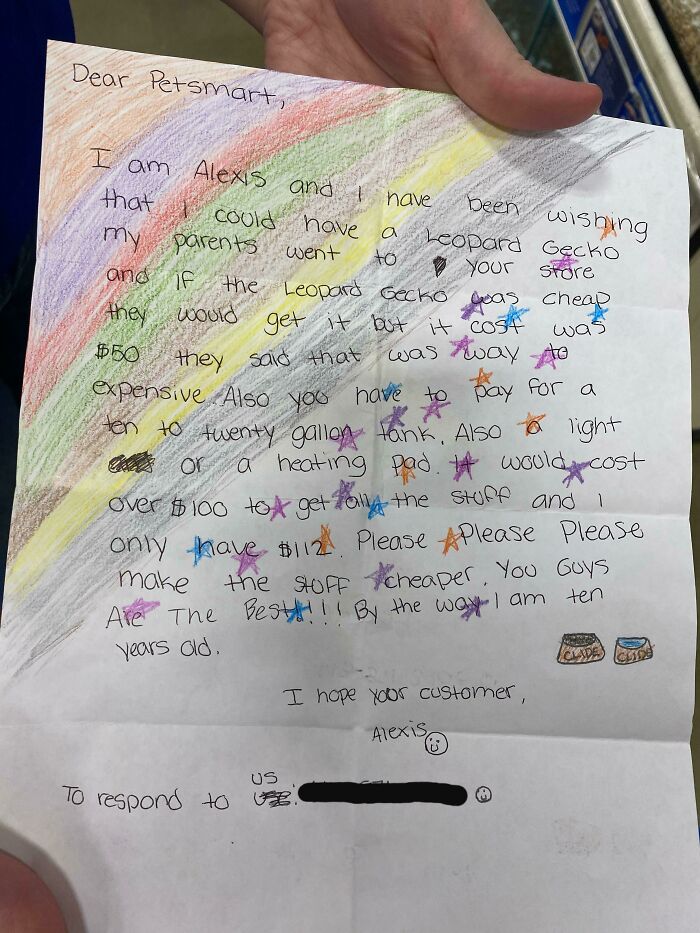 Dear Petsmart,
I am Alexis and I have been wishing
that I could have a Leopard Gecko
my parents went to your store
and if the Leopard Gecko was cheap
they would get it but it cost was
$50 they said that was way to
expensive. Also you have to pay for a
ten to twenty gallon tank. Also a light
or a heating pad. It would cost
over $100 to get all the stuff and I
only have $112. Please Please Please
make the stuff cheaper. You Guys
Are The Best!!!! By the way I am ten
years old.
CLADE CLIDE
I hope your customer,
Alexis
US
To respond to